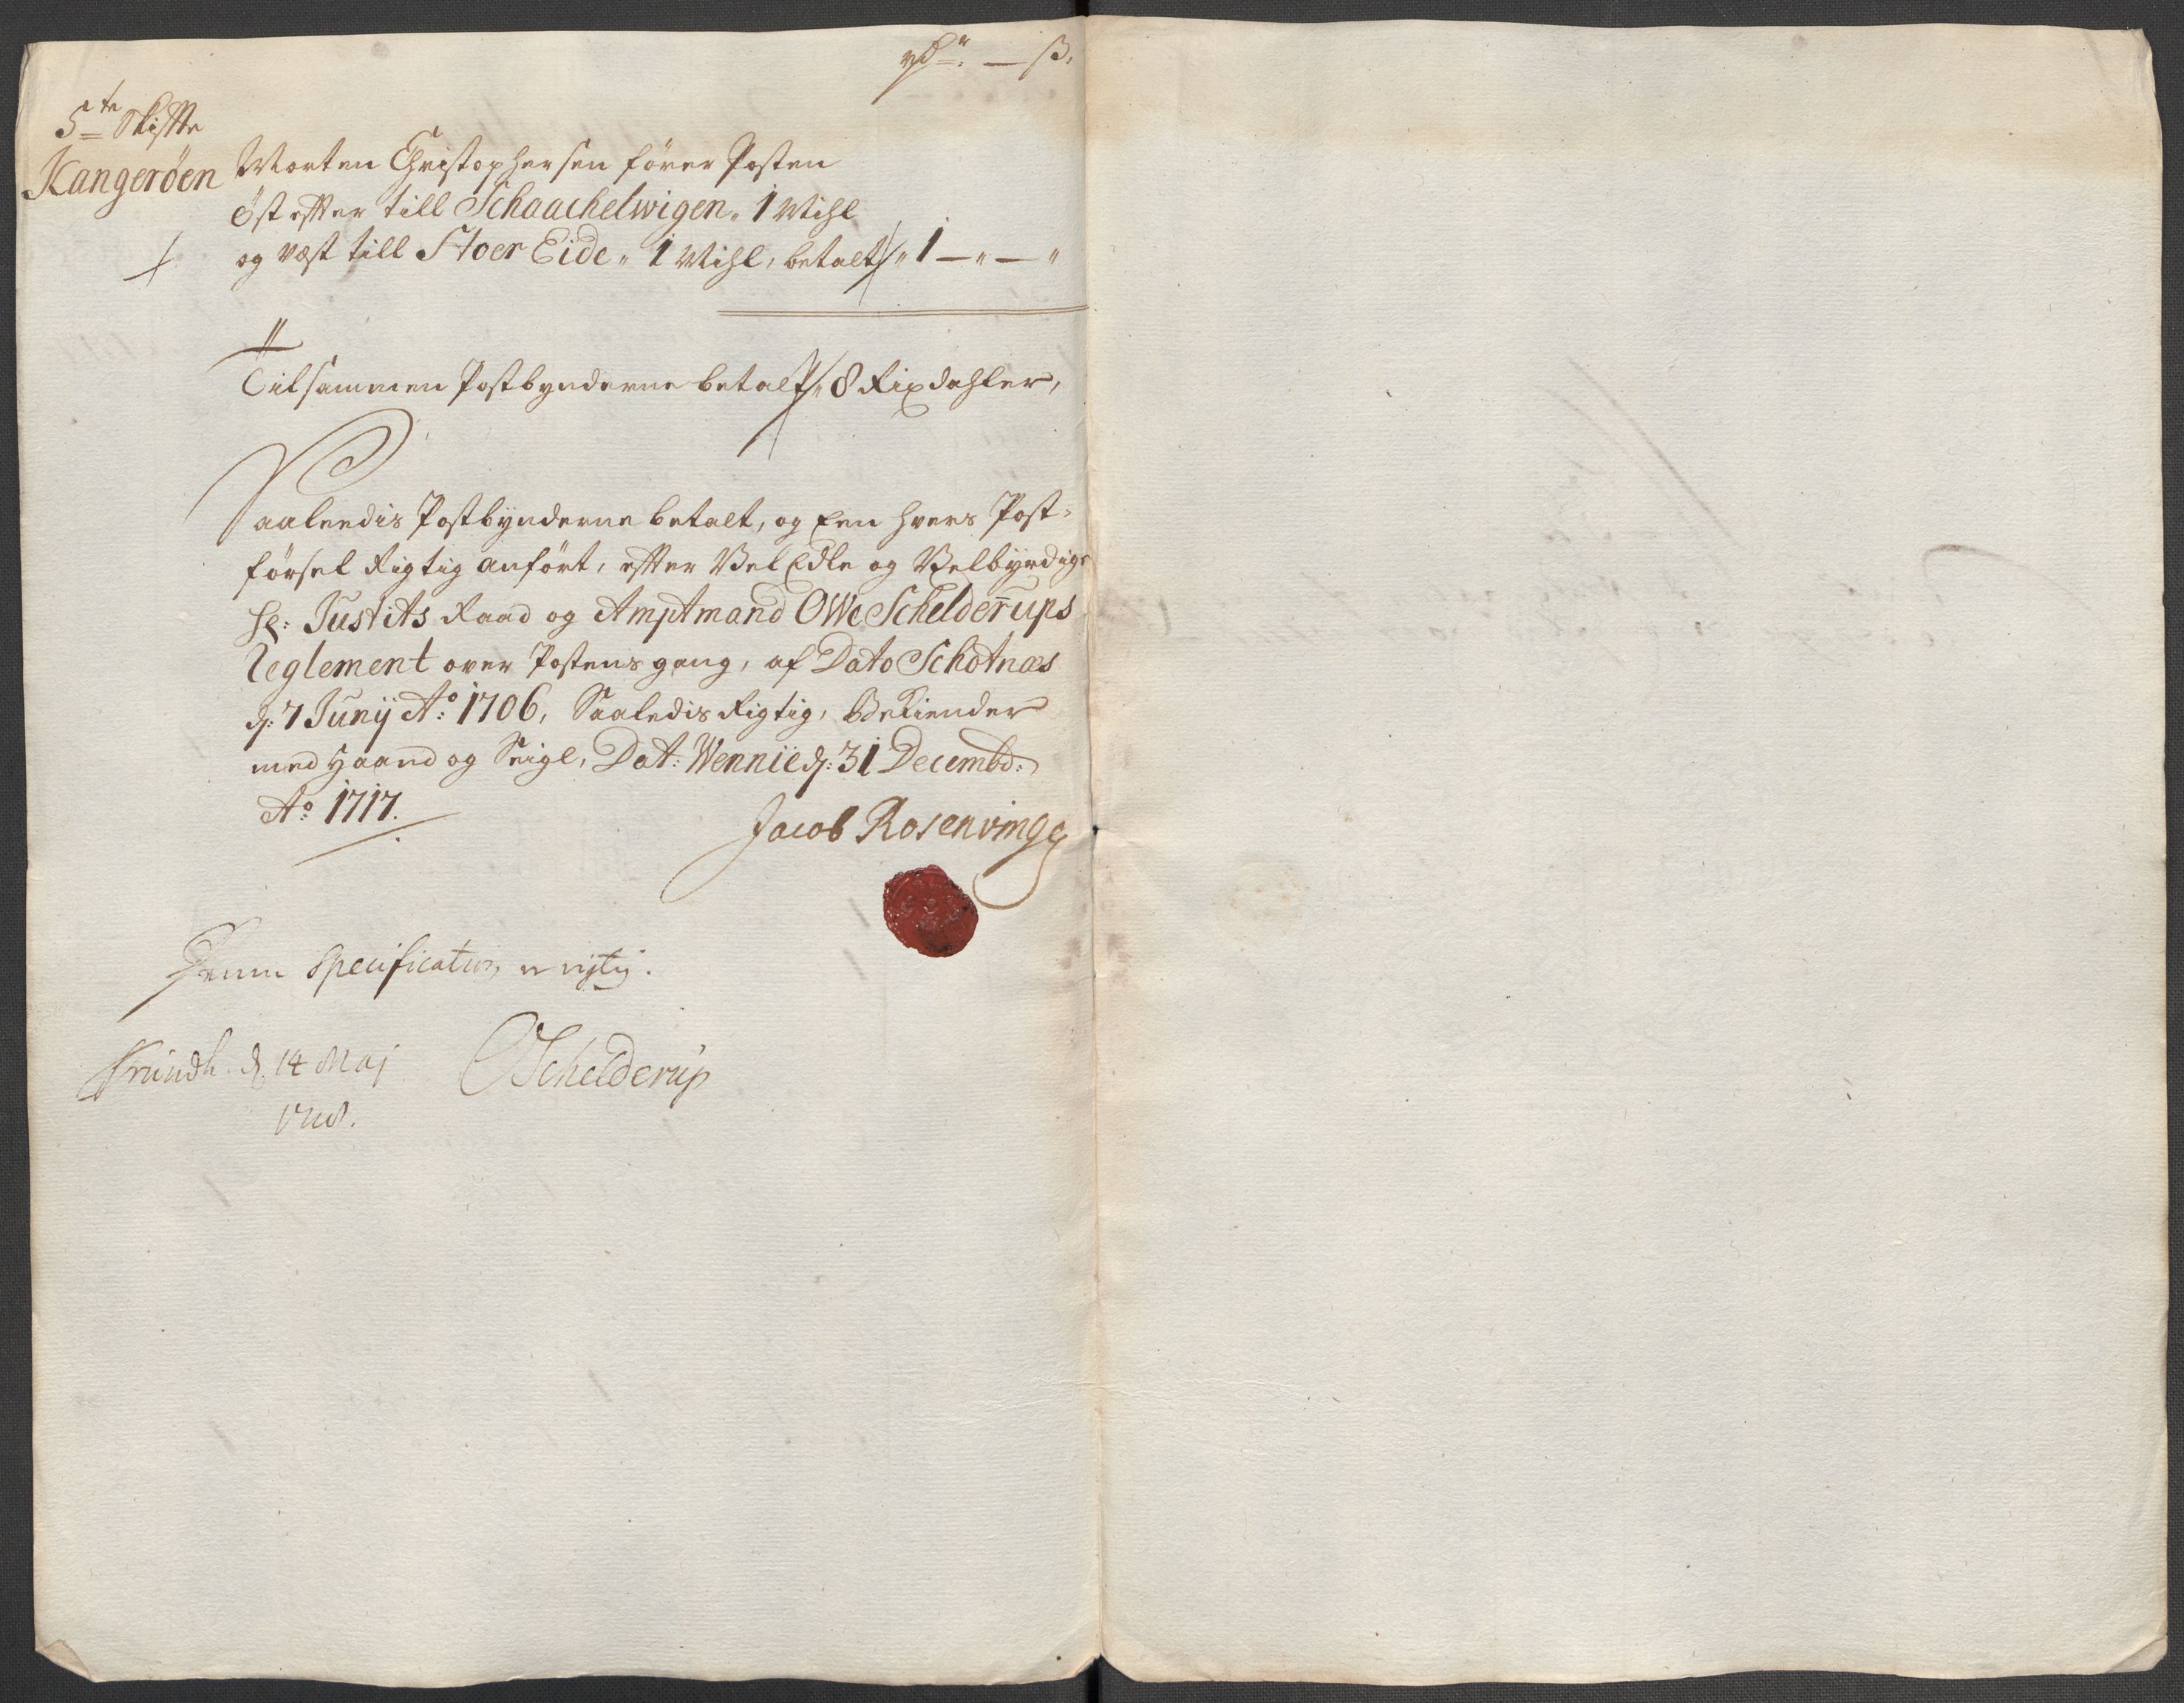 rdr. — ß.
5te Skiffte
Kangerøen
Morten Christophersen fører Posten
øst effter till Schaachelwigen. 1 Mihl
og væst till Stoer Eide. 1 Mihl, betalt " 1 — " — "
Tilsammen Postbynderne betalt " 8 Rixdahler,
Saaleedis Postbynderne betalt, og Een hvers Post-
førsel Rigtig anført, effter Vel Edle og Velbyrdige
Hr: Justits Raad og Amptmand Owe Schelderups
Reglement over Postens gang, af Dato Schotnæs
d: 7 Junij Ao: 1706, Saaledis Rigtig, Bekiender
med Haand og Seigl, Dat: Wennie d: 31 Decembr:
Ao: 1717.
Jacob Rosenvinge
Denne Specification er rigtig.
Trundh. d. 14 Maj
1718.
OSchelderup